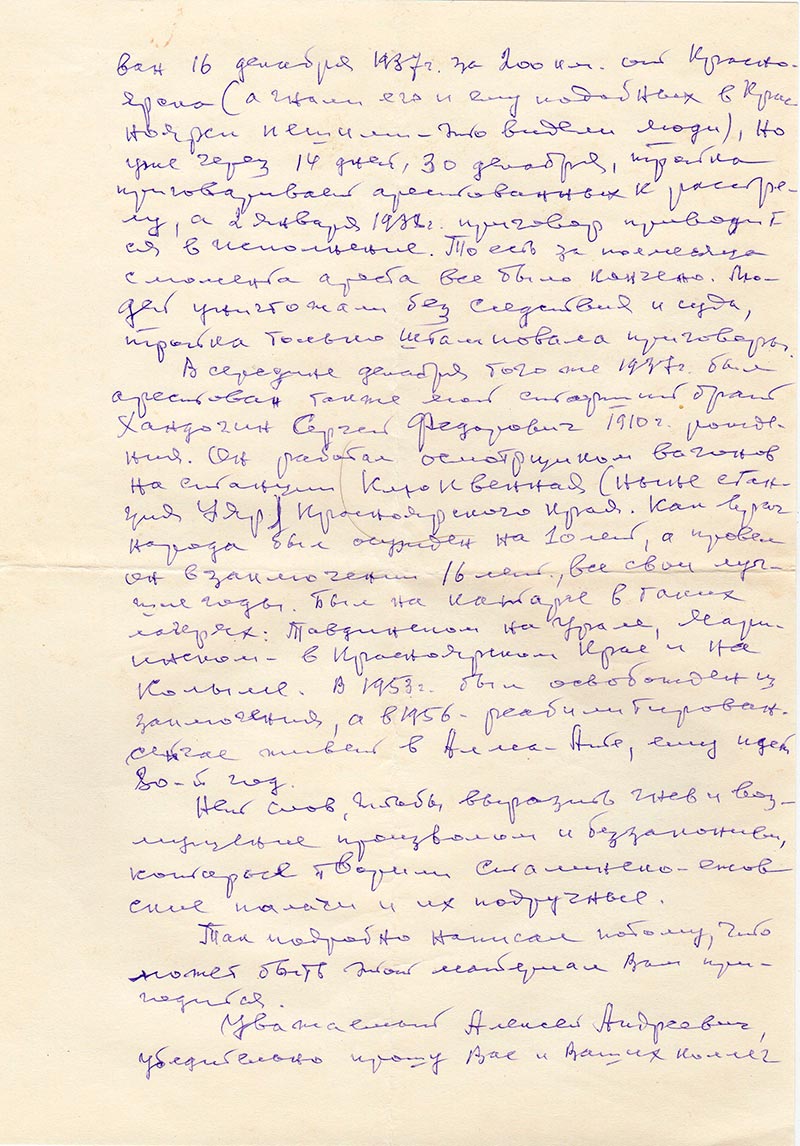 ван 16 декабря 1937г. за 200 км. от Красно-
ярска (а гнали его и ему подобных в Крас
ноярск пешими – это видели люди), но
уже через 14 дней, 30 декабря, тройка
приговаривает арестованных к расстре-
лу, а 2 января 1938г. приговор приводит
ся в исполнение. То есть за полмесяца
с момента ареста все было кончено. Лю-
дей уничтожали без следствия и суда,
тройка только штамповала приговоры.
В середине декабря того же 1937г. был
арестован также мой старший брат
Хандогин Сергей Федорович 1910г. рожде-
ния. Он работал осмотрщиком вагонов
на станции Клюквенная (ныне стан-
ция Уяр) Красноярского края. Как враг
народа был осужден на 10 лет, а провел
он в заключении 16 лет, все свои луч-
шие годы. Был на каторге в таких
лагерях: Тавдинском на Урале, Мари-
инском – в Красноярском крае и на
Колыме. В 1953г. был освобожден из
заключения, а в 1956 – реабилитирован.
сейчас живет в Алма-Ате, ему идет
80-й год.
Нет слов, чтобы выразить гнев и воз-
мущение произволом и беззаконием,
которые творили сталинско-ежов
ские палачи и их подручные.
Так подробно написал потому, что
может быть этот материал Вам при-
годится.
Уважаемый Алексей Андреевич,
убедительно прошу Вас и Ваших коллег